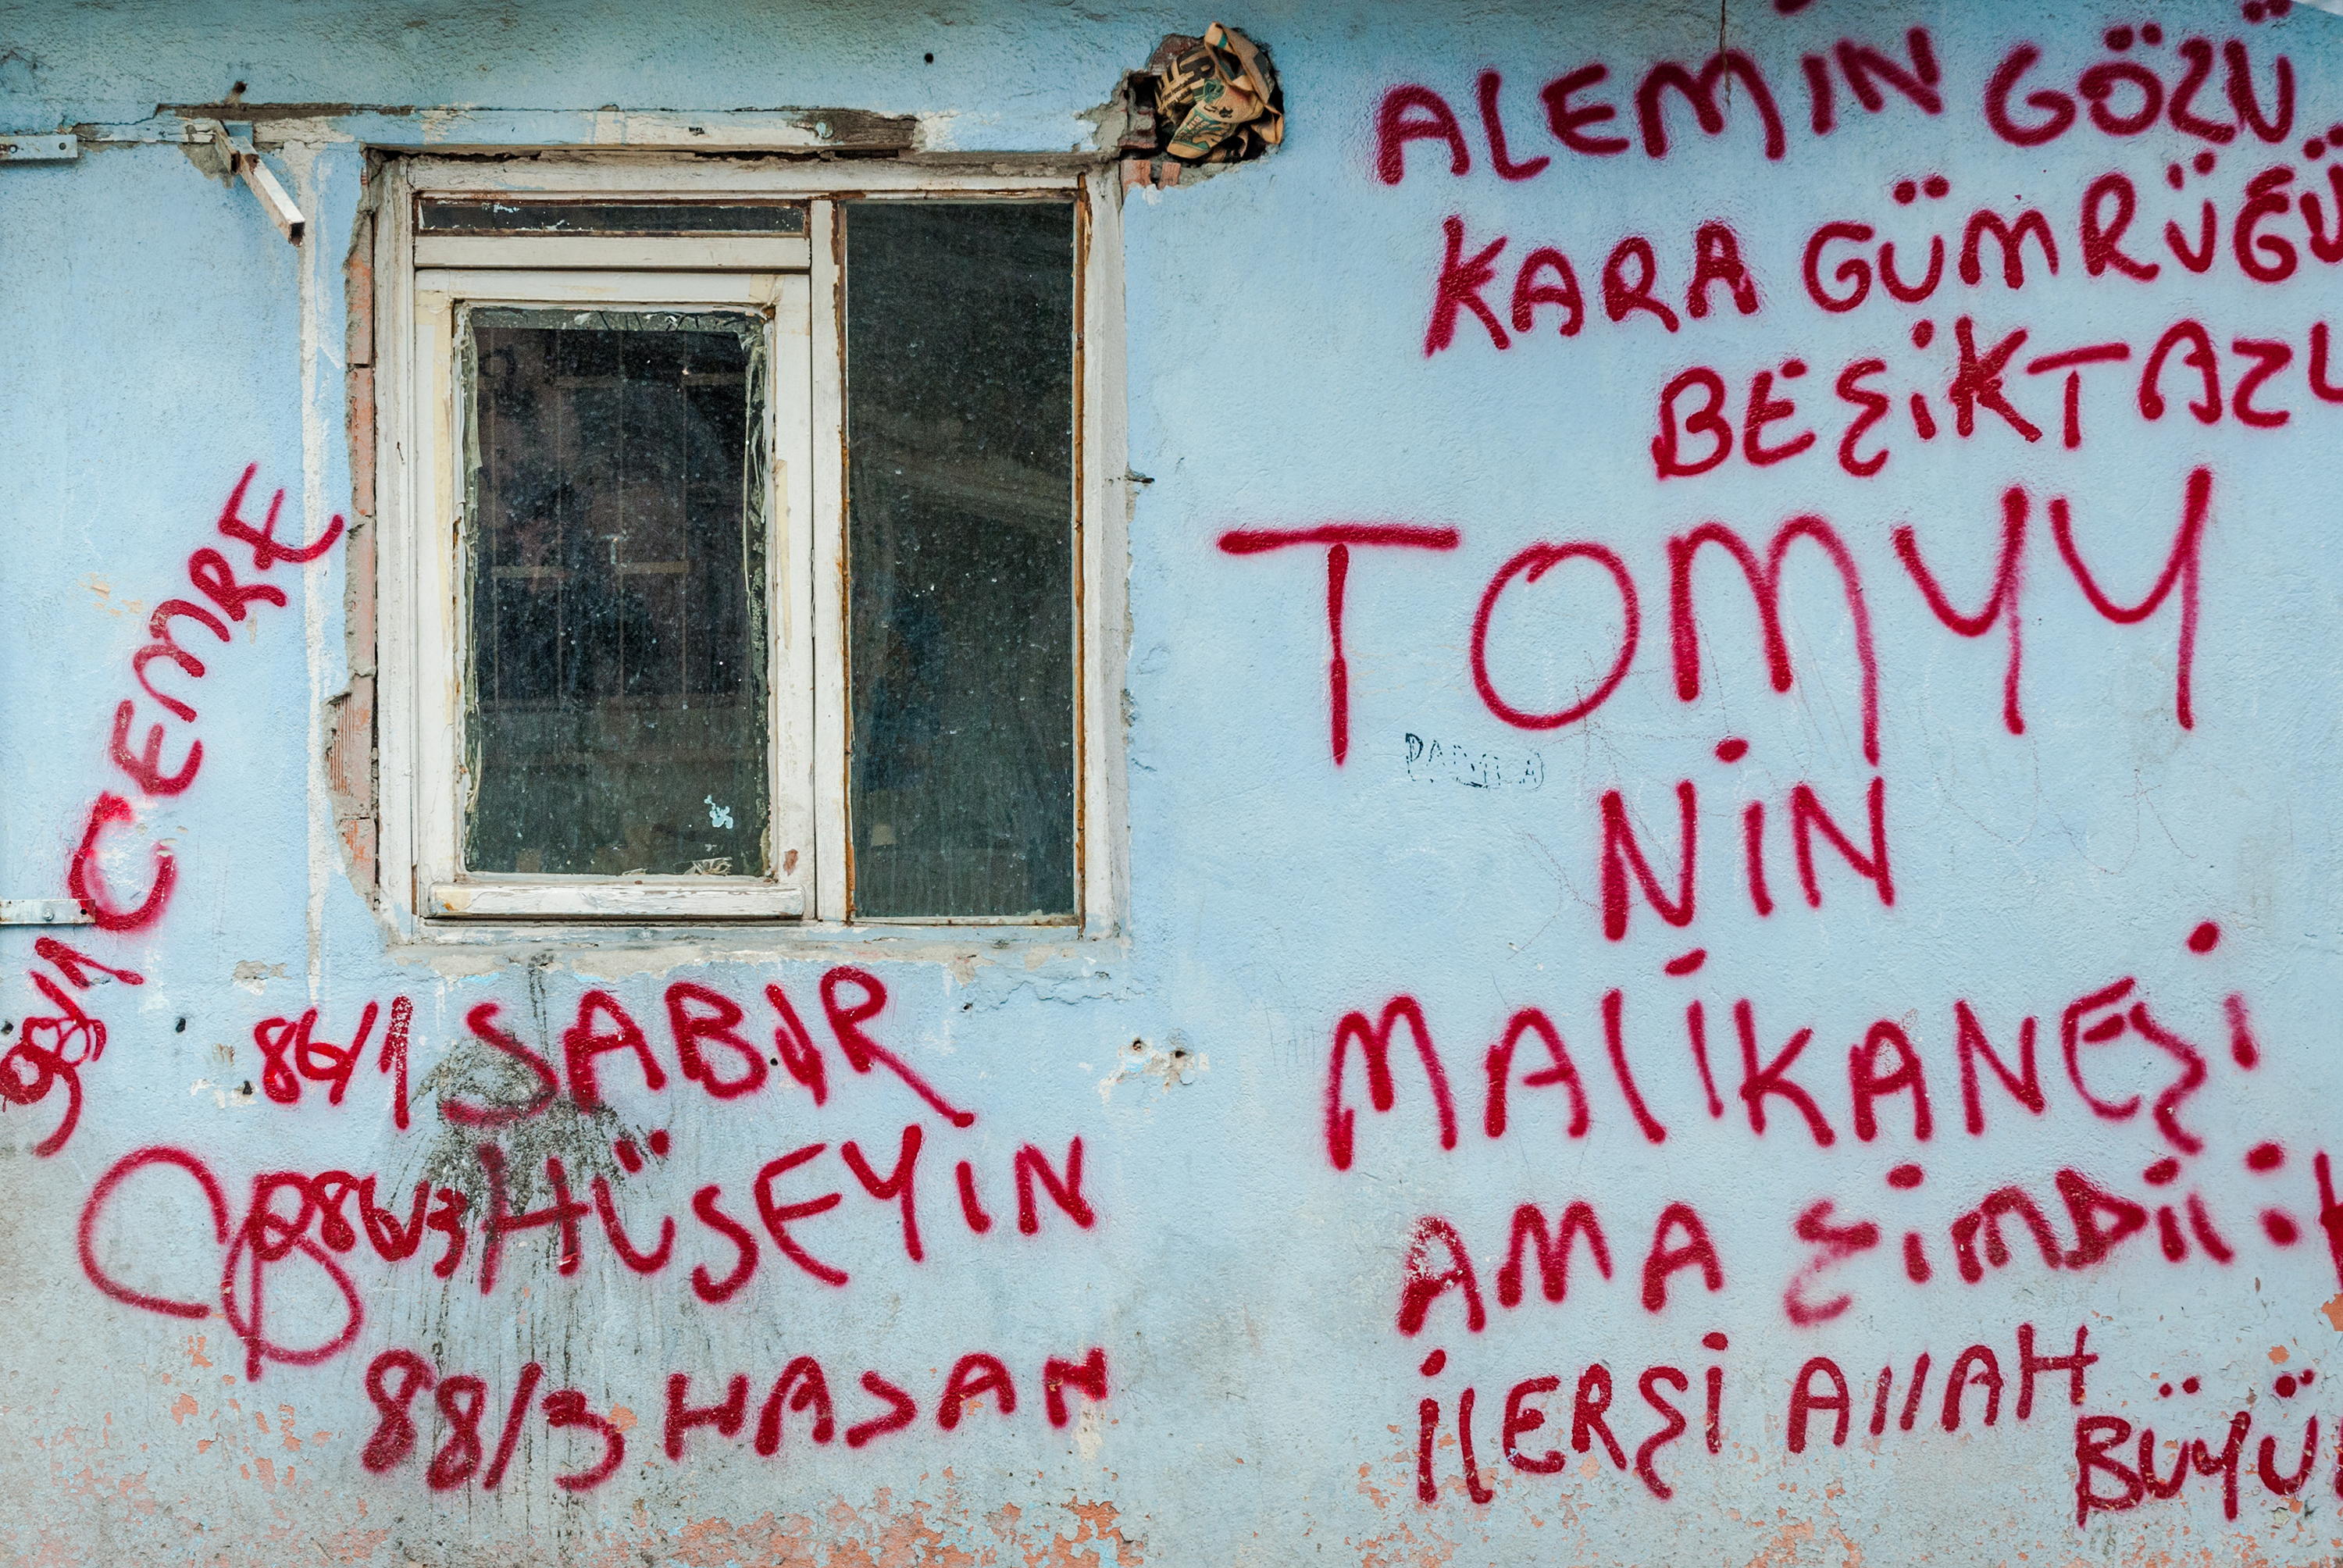 ALEMİN GÖZÜ
KARA GÜMRÜĞÜ
BEŞİKTAZL
TOMYY
NİN
MALİKANEŞİ
AMA ŞİMDİLİK
İLERŞİ AllAH
BÜYÜ
CEMRE
98/1
86/1 SABIR
86/3 HÜSEYİN
88/3 HASAN